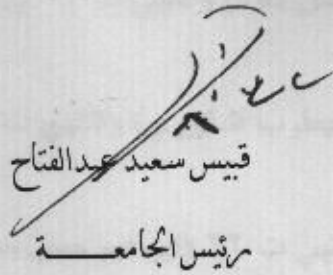 قبيس سعيد عبدالفتاح
رئيس الجامعـــــة